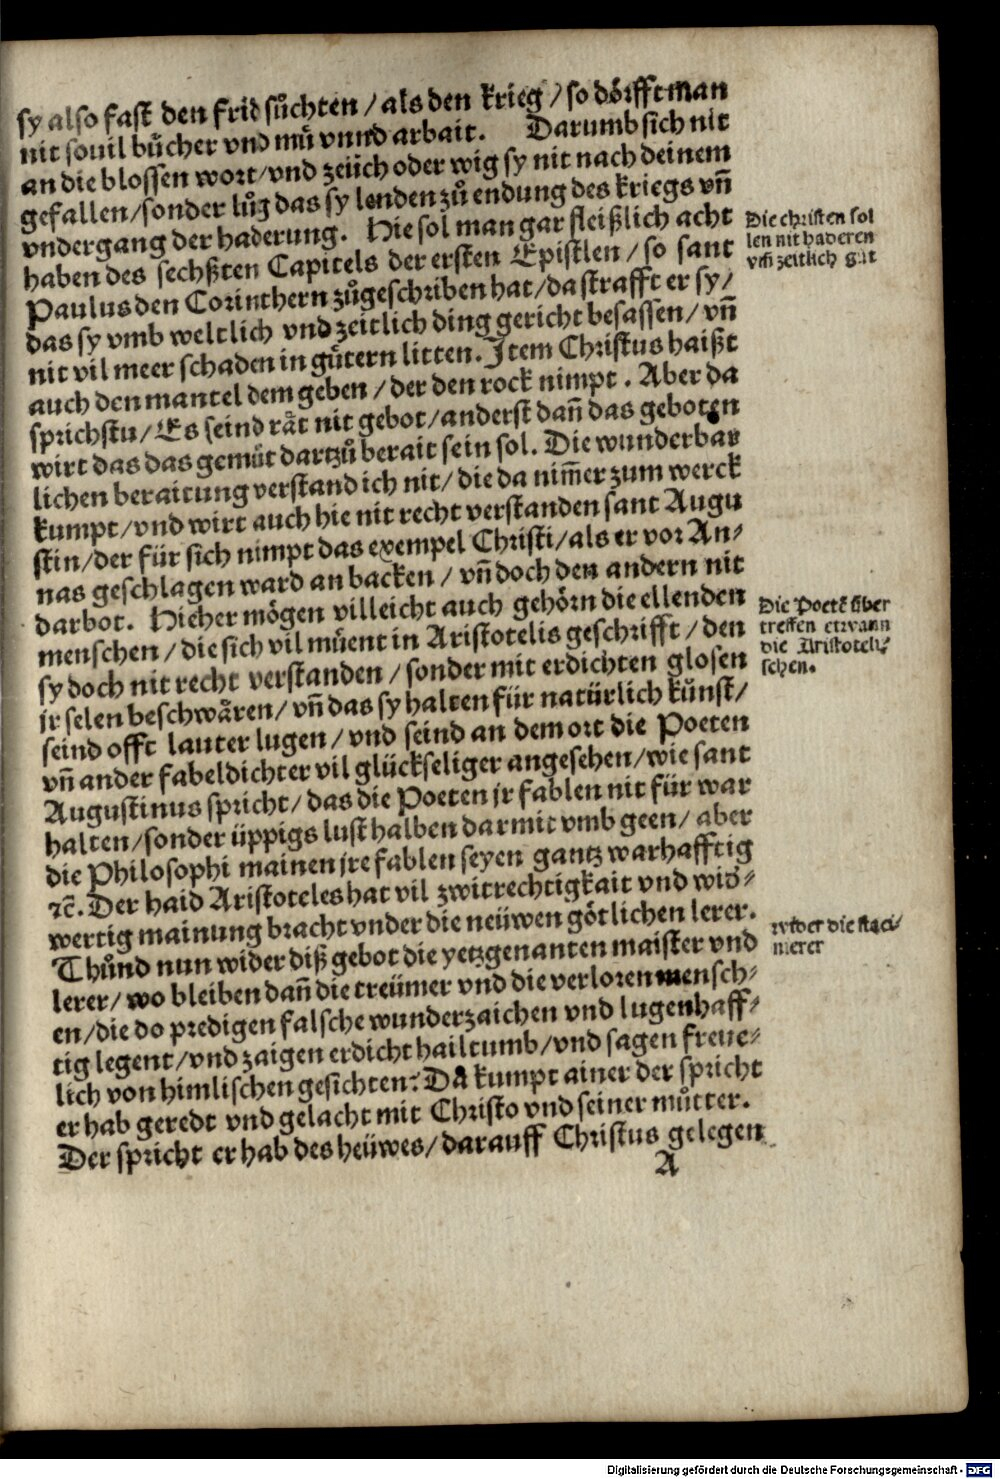 sy also fast den frid sůchten / als den krieg / so dörfft man
nit souil bůcher vnd mů vnnd arbait. Darumb sich nit
an die blossen wort / vnd zeüch oder wig sy nit nach deinem
gefallen / sonder lůg das sy lenden zů endung des kriegs vñ
vndergang der haderung. Hie sol man gar fleißlich acht
haben des sechßten Capitels der ersten Epistlen / so sant
Paulus den Corinthern zůgeschriben hat / da strafft er sy /
das sy vmb weltlich vnd zeitlich ding gericht besassen / vñ
nit vil meer schaden in gůtern litten. Item Christus haißt
auch den mantel dem geben / der den rock nimpt. Aber da
sprichstu / Es seind rät nit gebot / anderst dañ das geboten
wirt das das gemůt dartzů berait sein sol. Die wunderbar
lichen beraitung verstand ich nit / die da nim̃er zum werck
kumpt / vnd wirt auch hie nit recht verstanden sant Augu
stin / der für sich nimpt das exempel Christi / als er vor An⸗
nas geschlagen ward an backen / vñ doch den andern nit
darbot. Hieher mögen villeicht auch gehörn die ellenden
menschen / die sich vil můent in Aristotelis geschrifft / den
sy doch nit recht verstanden / sonder mit erdichten glosen
jr selen beschwären / vñ das sy halten für natürlich künst /
seind offt lauter lugen / vnd seind an dem ort die Poeten
vñ ander fabeldichter vil glückseliger angesehen / wie sant
Augustinus spricht / das die Poeten jr fablen nit für war
halten / sonder üppigs lust halben darmit vmb geen / aber
die Philosophi mainen jre fablen seyen gantz warhafftig
ꝛc̃. Der haid Aristoteles hat vil zwitrechtigkait vnd wid̕⸗
wertig mainung bracht vnder die neüwen götlichen lerer.
Thůnd nun wider diß gebot die yetzgenanten maister vnd
lerer / wo bleiben dañ die treümer vnd die verloren mensch⸗
en / die do predigen falsche wunderzaichen vnd lugenhaff⸗
tig legent / vnd zaigen erdicht hailtumb / vnd sagen freue⸗
lich von himlischen gesichten: Da kumpt ainer der spricht
er hab geredt vnd gelacht mit Christo vnd seiner můtter.
Der spricht er hab des heüwes / darauff Christus gelegen
A
Die christen sol
len nit haderen
vm̃ zeitlich gůt
Die Poetẽ über
treffen etwann
die Aristoteli⸗
schen.
wider die staci⸗
nierer
Digitalisierung gefördert durch die Deutsche Forschungsgemeinschaft - DFG